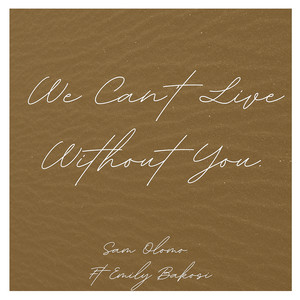 We Can't Live
Without You.
Sam Olomo
Ft Emily Bakosi